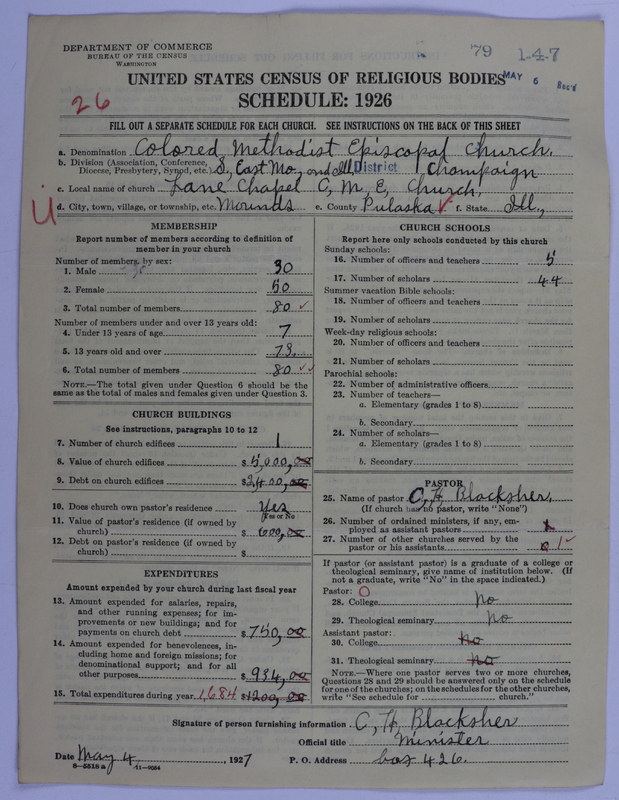 DEPARTMENT OF COMMERCE
BUREAU OF THE CENSUS
WASHINGTON
79 1-4-7
UNITED STATES CENSUS OF RELIGIOUS BODIES
MAY 6 Rec'd
26
SCHEDULE: 1926
FILL OUT A SEPARATE SCHEDULE FOR EACH CHURCH. SEE INSTRUCTIONS ON THE BACK OF THIS SHEET
a. Denomination Colored Methodist Episcopal Church.
b. Division (Association, Conference, Diocese, Presbytery, Synod, etc.) S, East Mo, and Ill, District Champaign
c. Local name of church Lane Chapel C, M, E, Church!
d. City, town, village, or township, etc. Mounds e. County Pulaska f. State Ill,
MEMBERSHIP
Report number of members according to definition of
member in your church
Number of members, by sex:
1. Male 30
2. Female 50
3. Total number of members 80
Number of members under and over 13 years old:
4. Under 13 years of age 7
5. 13 years old and over 73
6. Total number of members 80
NOTE.—The total given under Question 6 should be the
same as the total of males and females given under Question 3.
CHURCH BUILDINGS
See instructions, paragraphs 10 to 12
7. Number of church edifices 1
8. Value of church edifices $5,000,00
9. Debt on church edifices $2,400,00
10. Does church own pastor's residence Yes
(Yes or No)
11. Value of pastor's residence (if owned by
church) $ 600,00
12. Debt on pastor's residence (if owned by
church) $
EXPENDITURES
Amount expended by your church during last fiscal year
13. Amount expended for salaries, repairs,
and other running expenses; for im-
provements or new buildings; and for
payments on church debt $750,00
14. Amount expended for benevolences, in-
cluding home and foreign missions; for
denominational support; and for all
other purposes $934,00
15. Total expenditures during year 1,684 $1200,00
CHURCH SCHOOLS
Report here only schools conducted by this church
Sunday schools:
16. Number of officers and teachers 5
17. Number of scholars 44
Summer vacation Bible schools:
18. Number of officers and teachers
19. Number of scholars
Week-day religious schools:
20. Number of officers and teachers
21. Number of scholars
Parochial schools:
22. Number of administrative officers
23. Number of teachers—
a. Elementary (grades 1 to 8)
b. Secondary
24. Number of scholars—
a. Elementary (grades 1 to 8)
b. Secondary
PASTOR
25. Name of pastor C, H Blacksher,
(If church has no pastor, write "None")
26. Number of ordained ministers, if any, em-
ployed as assistant pastors 1
27. Number of other churches served by the
pastor or his assistants 0 1
If pastor (or assistant pastor) is a graduate of a college or
theological seminary, give name of institution below. (If
not a graduate, write "No" in the space indicated.)
Pastor:
28. College No
29. Theological seminary No
Assistant pastor:
30. College No
31. Theological seminary No
NOTE.—Where one pastor serves two or more churches,
Questions 28 and 29 should be answered only on the schedule
for one of the churches; on the schedules for the other churches,
write "See schedule for church."
Signature of person furnishing information C, H, Blacksher
Official title Minister
Date May 4, 1927 P. O. Address box 426.
8—5518 a 11—9064